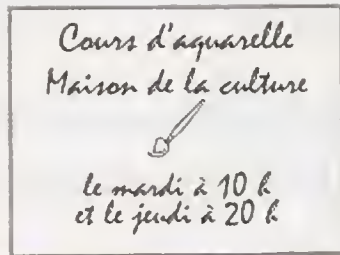 Cours d'aquarelle
Maison de la culture
le mardi à 10 h
et le jeudi à 20 h